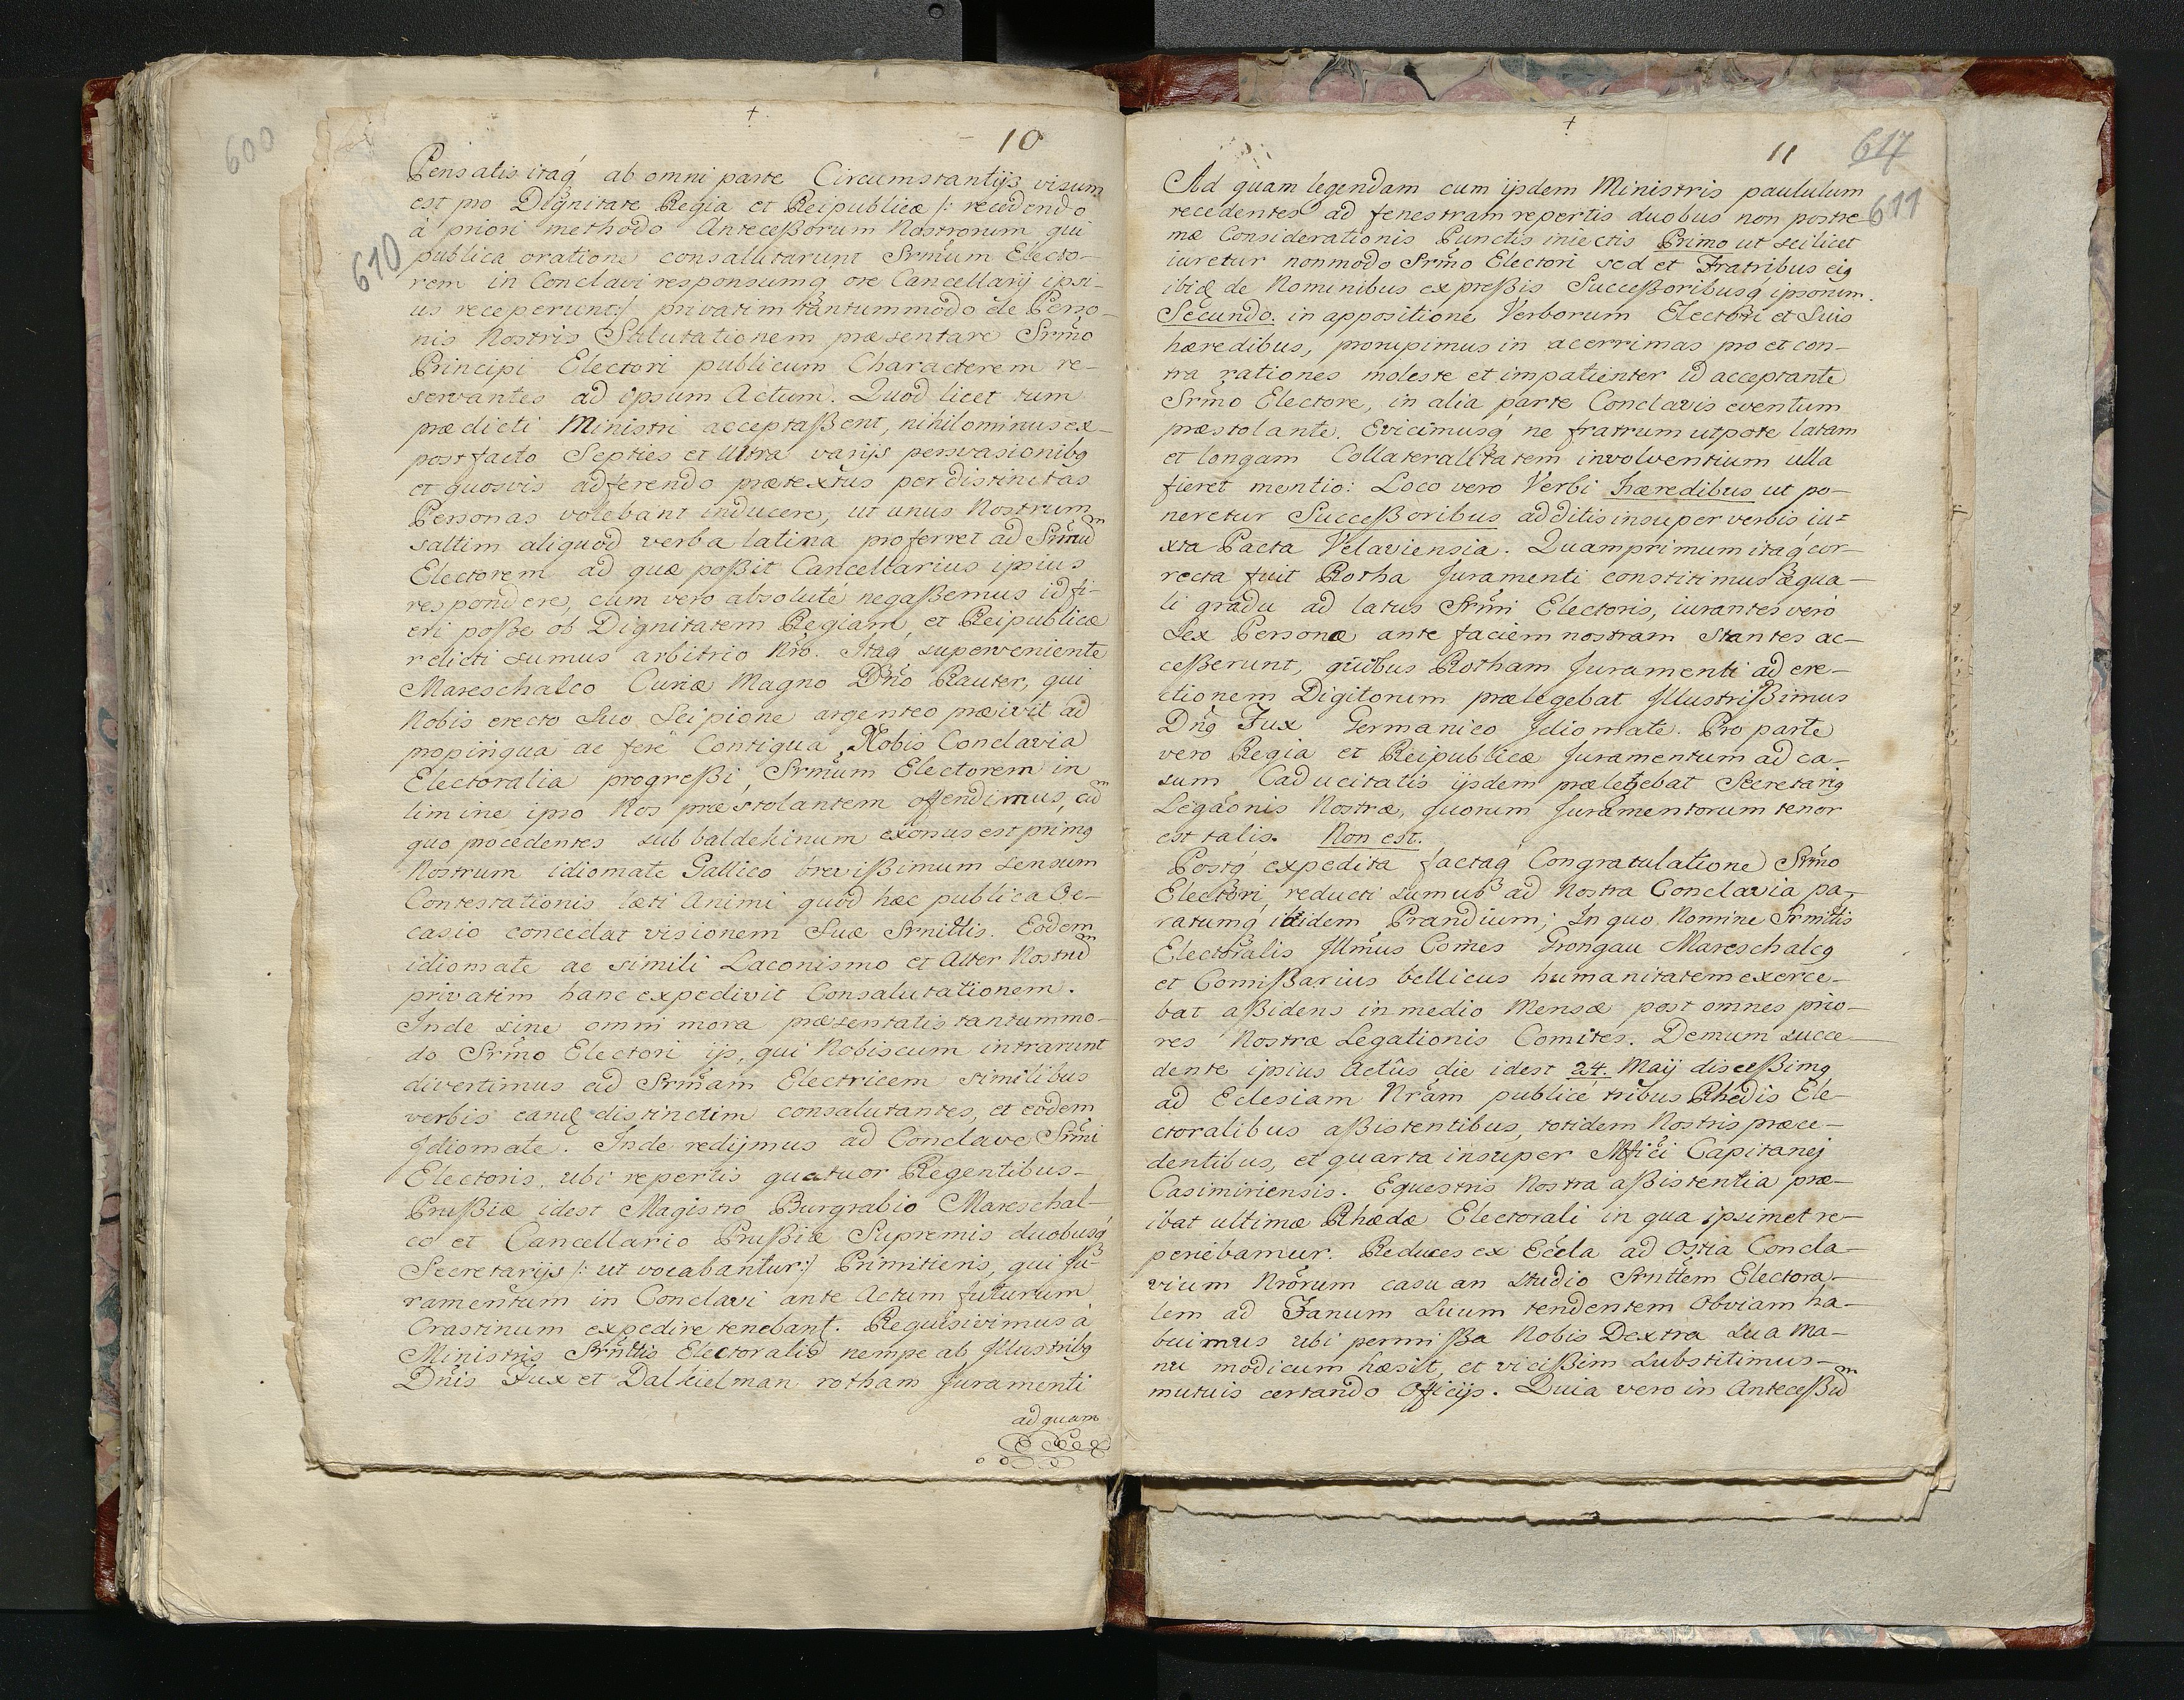 600
610
+
10
Pensatis itaq́ ab omni parte Circumstantijs visum
est pro Dignitate Regia et Reipublicæ /: recedendo
à priori methodo Anteceßorum Nostrorum qui
publica oratione consalutarunt Srm̃um Electo-
rem in Conclavi responsumq́ ore Cancellarij ipsi-
us receperunt:/ privatim tantummodo de Perso-
nis Nostris Salutationem præsentare Srm̃o
Principi Electori publicum Characterem re-
servantes ad ipsum Actum. Quod licet tum
prædicti Ministri acceptaßent, nihilominus ex
post facto Septies et Ultra varijs persvasionibq
et quosvis adferendo prætextus per distinctas
Personas volebant inducere, ut unus Nostrum
saltim aliquod verba latina proferret ad Srm̃ũ
Electorem ad quæ poßit Cancellarius ipsius
respondere, cum vero absolute negaßemus id fi-
eri poße ob Dignitatem Regiam, et Reipublicæ
relicti sumus arbitrio Nr̃o. Itaq́ superveniente
Mareschalco Curiæ Magno Dño Rauter, qui
Nobis erecto suo Scipione argenteo præivit ad
propinqua ac ferè Contigua Nobis Conclavia
Electoralia progreßi, Srm̃um Electorem in
limine ipso Nos præstolantem offendimus, cũ
quo procedentes sub baldekinum exorsus est primq
Nostrum idiomate Gallico brevißimum sensum
Contestationis læti Animi quod hæc publica Oc-
casio concedat visionem Suæ Srnittis. Eodem
idiomate ac simili Laconismo et Alter Nostrũ
privatim hanc expedivit Consalutationem.
Inde sine omni mora præsentatis tantummo-
do Srm̃o Electori ijs, qui Nobiscum intrarunt
divertimus ad Srm̃am Electricem similibus
verbis eamq́ distinctim consalutantes, et eodem
Idiomate. Inde redijmus ad Conclave Srm̃i
Electoris, ubi repertis quatuor Regentibus
Prußiæ idest Magistro Burgrabio Mareschal-
co et Cancellario Prußiæ Supremis duobusq́
Secretarijs /: ut vocabantur:/ Primitieris, qui Ju-
ramentum in Conclavi ante Actum futurum
Crastinum expedire tenebant. Requisivimus à
Ministris Srnittis Electoralis nempe ab Illustribq
Dñis Fux et Dalhielman rotham Juramenti
ad quam
+
11
617
611
Ad quam legendam cum ijsdem Ministris paululum
recedentes ad fenestram repertis duobus non postre-
mæ Considerationis Punctis iniectis Primo ut scilicet
iuretur nonmodo Srm̃o Electori sed et Fratribus eiq
ibiq́ de Nominibus expreßis Succeßoribusq́ ipsorum.
Secundo. in appositione Verborum Electori et Suis
hæredibus, prorupimus in acerrimas pro et con-
tra rationes moleste et impatienter id acceptante
Srm̃o Electore, in alia parte Conclavis eventum
præstolante. Evicimusq́ ne fratrum utpote latam
et longam Collateralitatem involventium ulla
fieret mentio: Loco vero Verbi hæredibus ut po-
neretur Succeßoribus additis insuper verbis iu-
xta Pacta Velaviensia. Quamprimum itaq́ cor-
recta fuit Rotha Juramenti constitimus æqua-
li gradu ad latus Srm̃i Electoris, iurantes vero
Sex Personæ ante faciem nostram stantes ac-
ceßerunt, quibus Rotham Juramenti ad ere-
ctionem Digitorum prælegebat Illustrißimus
Dñq Fux Germanico Idiomate. Pro parte
vero Regia et Reipublicæ Juramentum ad ca-
sum Caducitatis ijsdem prælegebat Secretariq
Legaõnis Nostræ, quorum Juramentorum tenor
est talis. Non est.
Postq́ expedita factaq́ Congratulatione Srm̃o
Electori, reducti sumus ad Nostra Conclavia pa-
ratumq́ ibidem Prandium; In quo Nomine Srnittis
Electoralis Illm̃us Comes Trongau Mareschalcq
et Comißarius bellicus humanitatem exerce-
bat aßidens in medio Mensæ post omnes prio-
res Nostræ Legationis Comites. Demum succe-
dente ipsius Actûs die idest 24. Maij disceßimq
ad Eclesiam Nr̃am publicè tribus Rhedis Ele-
ctoralibus aßistentibus, totidem Nostris præce-
dentibus, et quarta insuper Mfici Capitanej
Casimiriensis. Equestris Nostra aßistentia præ-
ibat ultimæ Rhædæ Electorali in qua ipsimet re-
periebamur. Reduces ex Eccla ad Ostia Concla-
vium Nr̃orum casu an studio Srnittem Electora-
lem ad Fanum Suum tendentem Obviam ha-
buimus ubi permißa Nobis Dextra sua ma-
nu modicum hæsit, et vicißim substitimus
mutuis certando Officijs. Quia vero in Anteceßũ